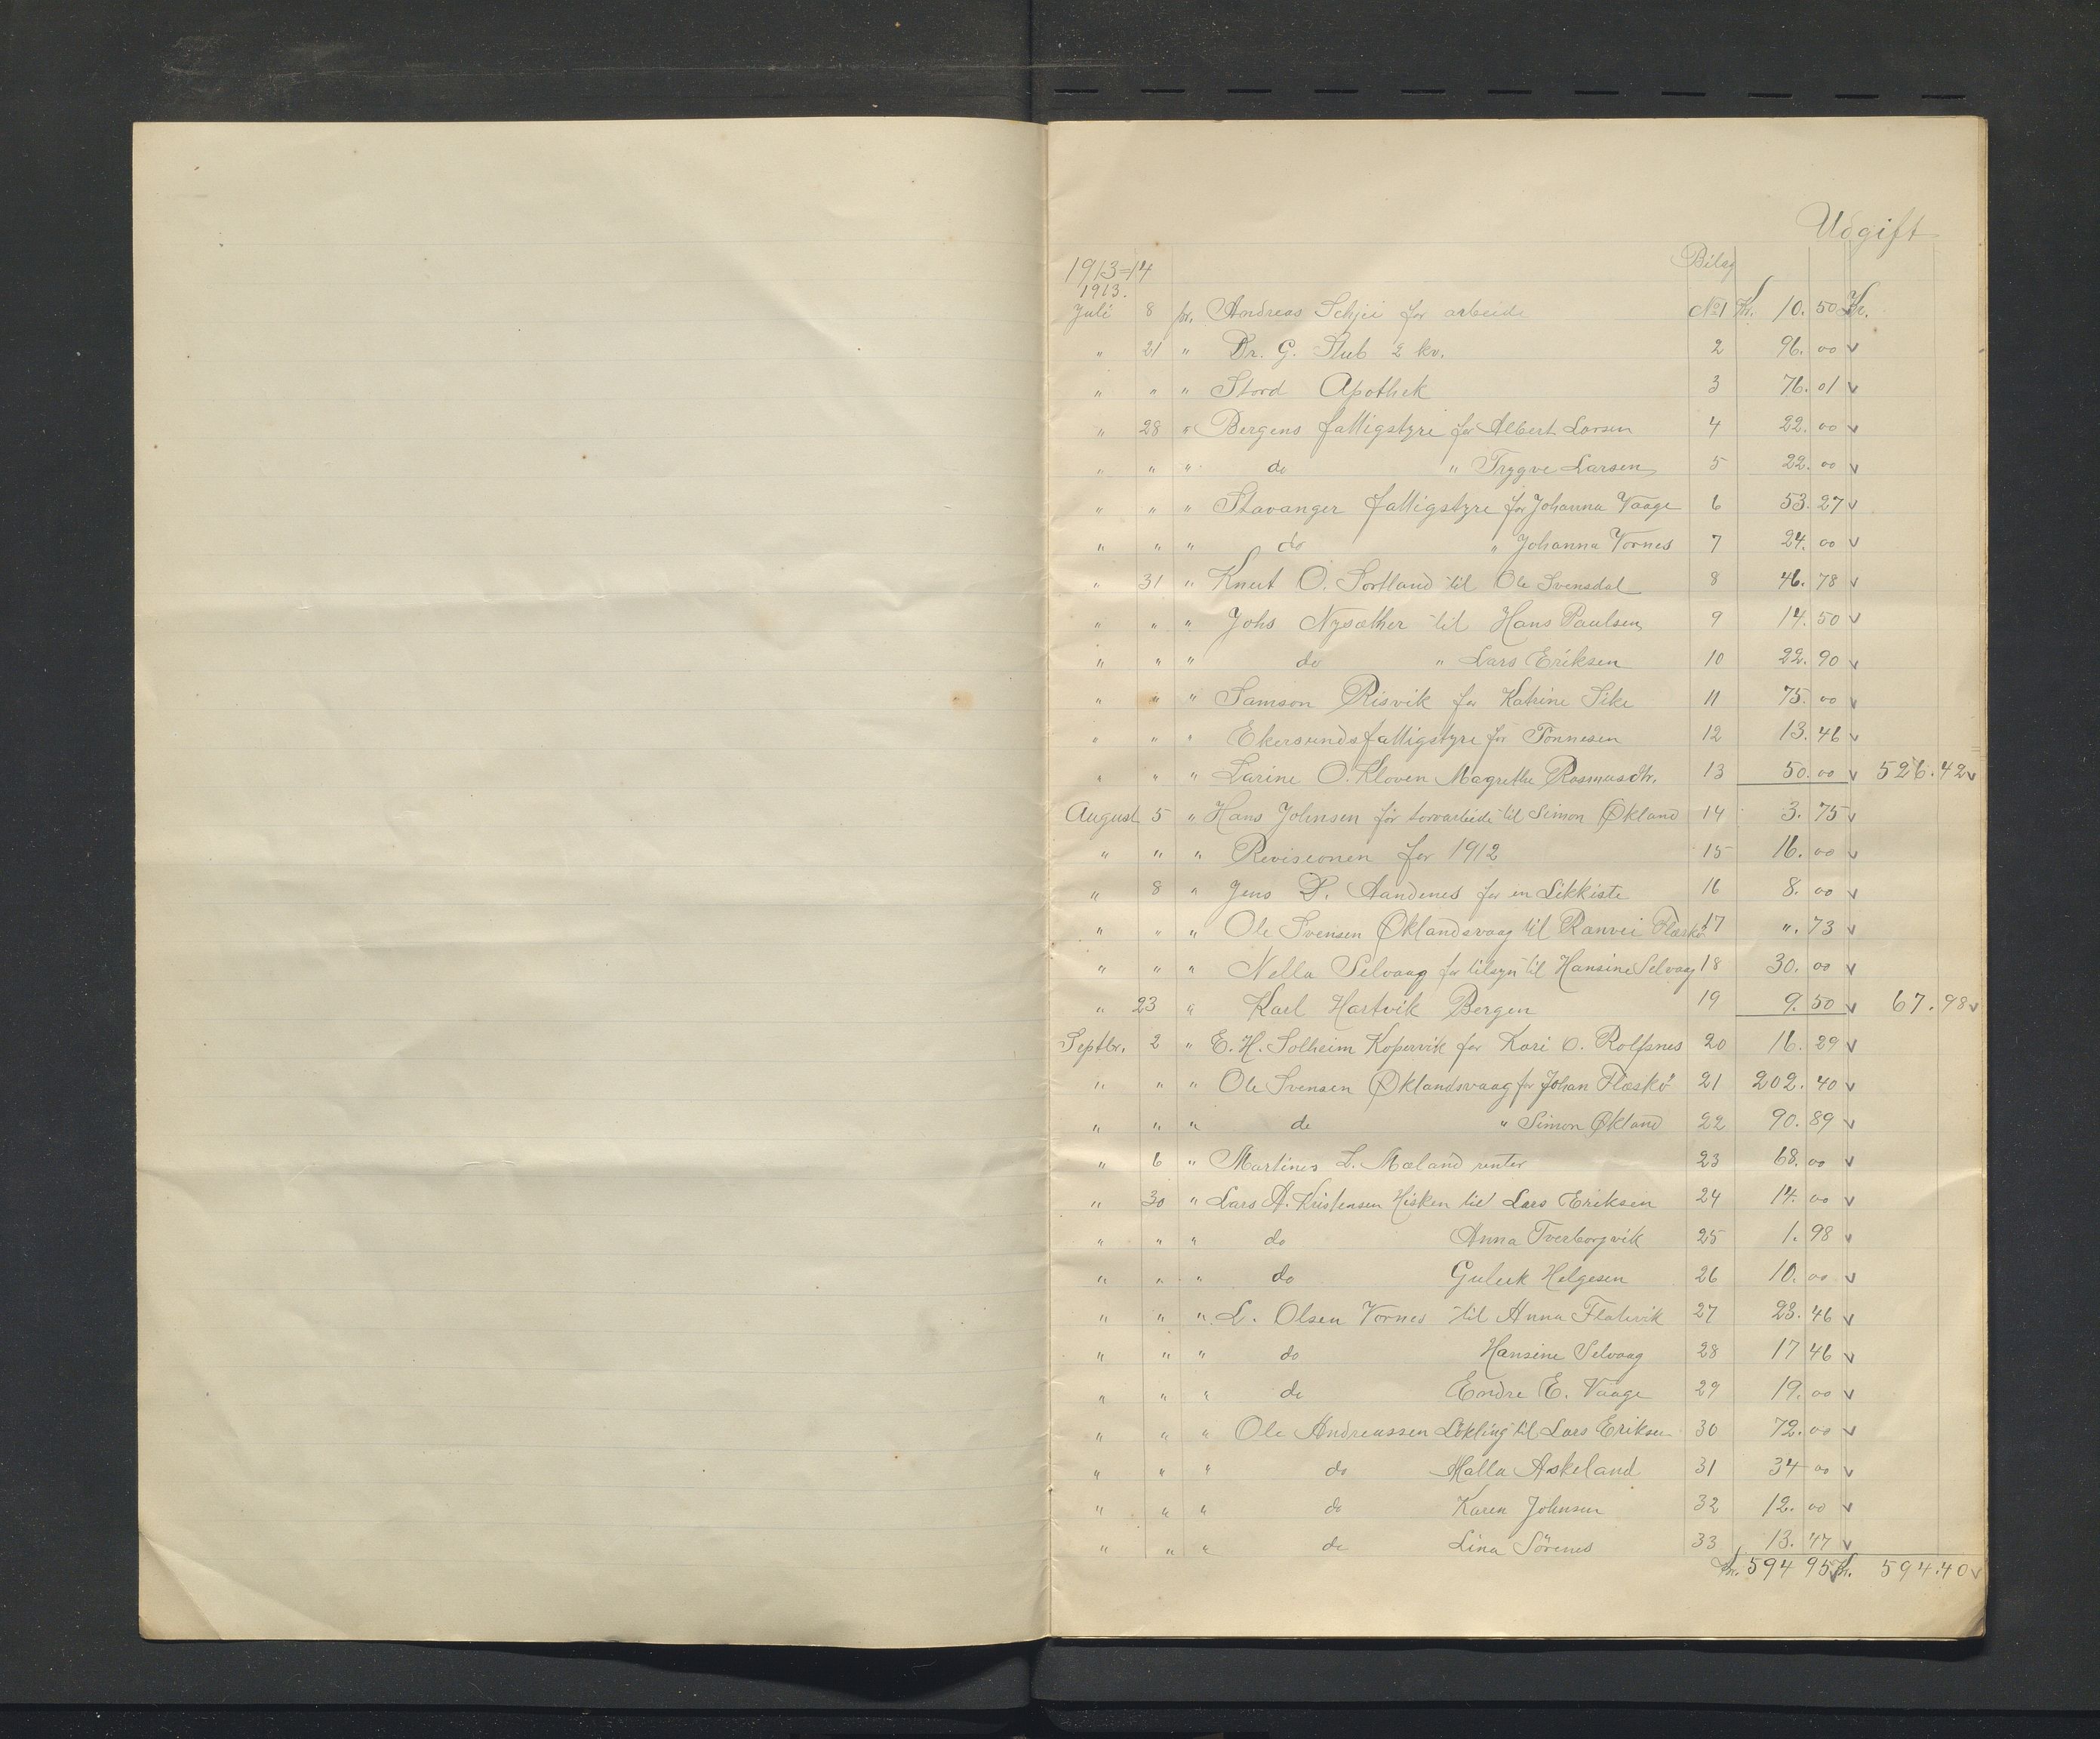 Udgift
Bilag
1913-14
1913.
Juli 8 pr. Andreas Schjei for arbeide No1 Kr. 10. 50 Kr.
" 21 " Dr. G. Stub 2 kv. 2 96. 00 v
" " " Stord Apothek 3 76. 01 v
" 28 " Bergens fattigstyre for Albert Larsen 4 22. 00 v
" " " do " Trygve Larsen 5 22. 00 v
" " " Stavanger fattigstyre for Johanna Vaage 6 53. 27 v
" " " do " Johanna Vornes 7 24. 00 v
" 31 " Knut O. Sortland til Ole Svensdal 8 46. 78 v
" " " Johs Nysæther til Hans Paulsen 9 14. 50 v
" " " do " Lars Eriksen 10 22. 90 v
" " " Samson Risvik for Katrine Sike 11 75. 00 v
" " " Ekersunds fattigstyre for Tonnesen 12 13. 46 v
" " " Larine O. Kloven Magrethe Rasmusdtr. 13 50. 00 v 526. 42 v
August 5 " Hans Johnsen for torvarbeide til Simon Økland 14 3. 75 v
" " " Revisionen for 1912 15 16. 00 v
" 8 " Jens P. Aandenes for en Likkiste 16 8. 00 v
" " " Ole Svensen Øklandsvaag til Ranvei Flæskø 17 ". 73 v
" " " Nella Selvaag for tilsyn til Hansine Selvaag 18 30. 00 v
" 23 " Karl Hartvik Bergen 19 9. 50 v 67. 98 v
Septbr. 2 " E. H. Solheim Kopervik for Kari O. Rolfsnes 20 16. 29 v
" " " Ole Svensen Øklandsvaag for Johan Flæskø 21 202. 40 v
" " " do " Simon Økland 22 90. 89 v
" 6 " Martines L. Mæland renter 23 68. 00 v
" 30 " Lars A. Kristensen Hisken til Lars Eriksen 24 14. 00 v
" " " do Anna Tverborgvik 25 1. 98 v
" " " do Guleik Helgesen 26 10. 00 v
" " " L. Olsen Vornes til Anna Flatevik 27 23. 46 v
" " " do Hansine Selvaag 28 17 46 v
" " " do Endre E. Vaage 29 19. 00 v
" " " Ole Andreassen Løkling til Lars Eriksen 30 72. 00 v
" " " do Malla Askeland 31 34 00 v
" " " do Karen Johnsen 32 12. 00 v
" " " do Lina Sörenes 33 13. 47 v
Kr. 594 95 v Kr. 594. 40 v